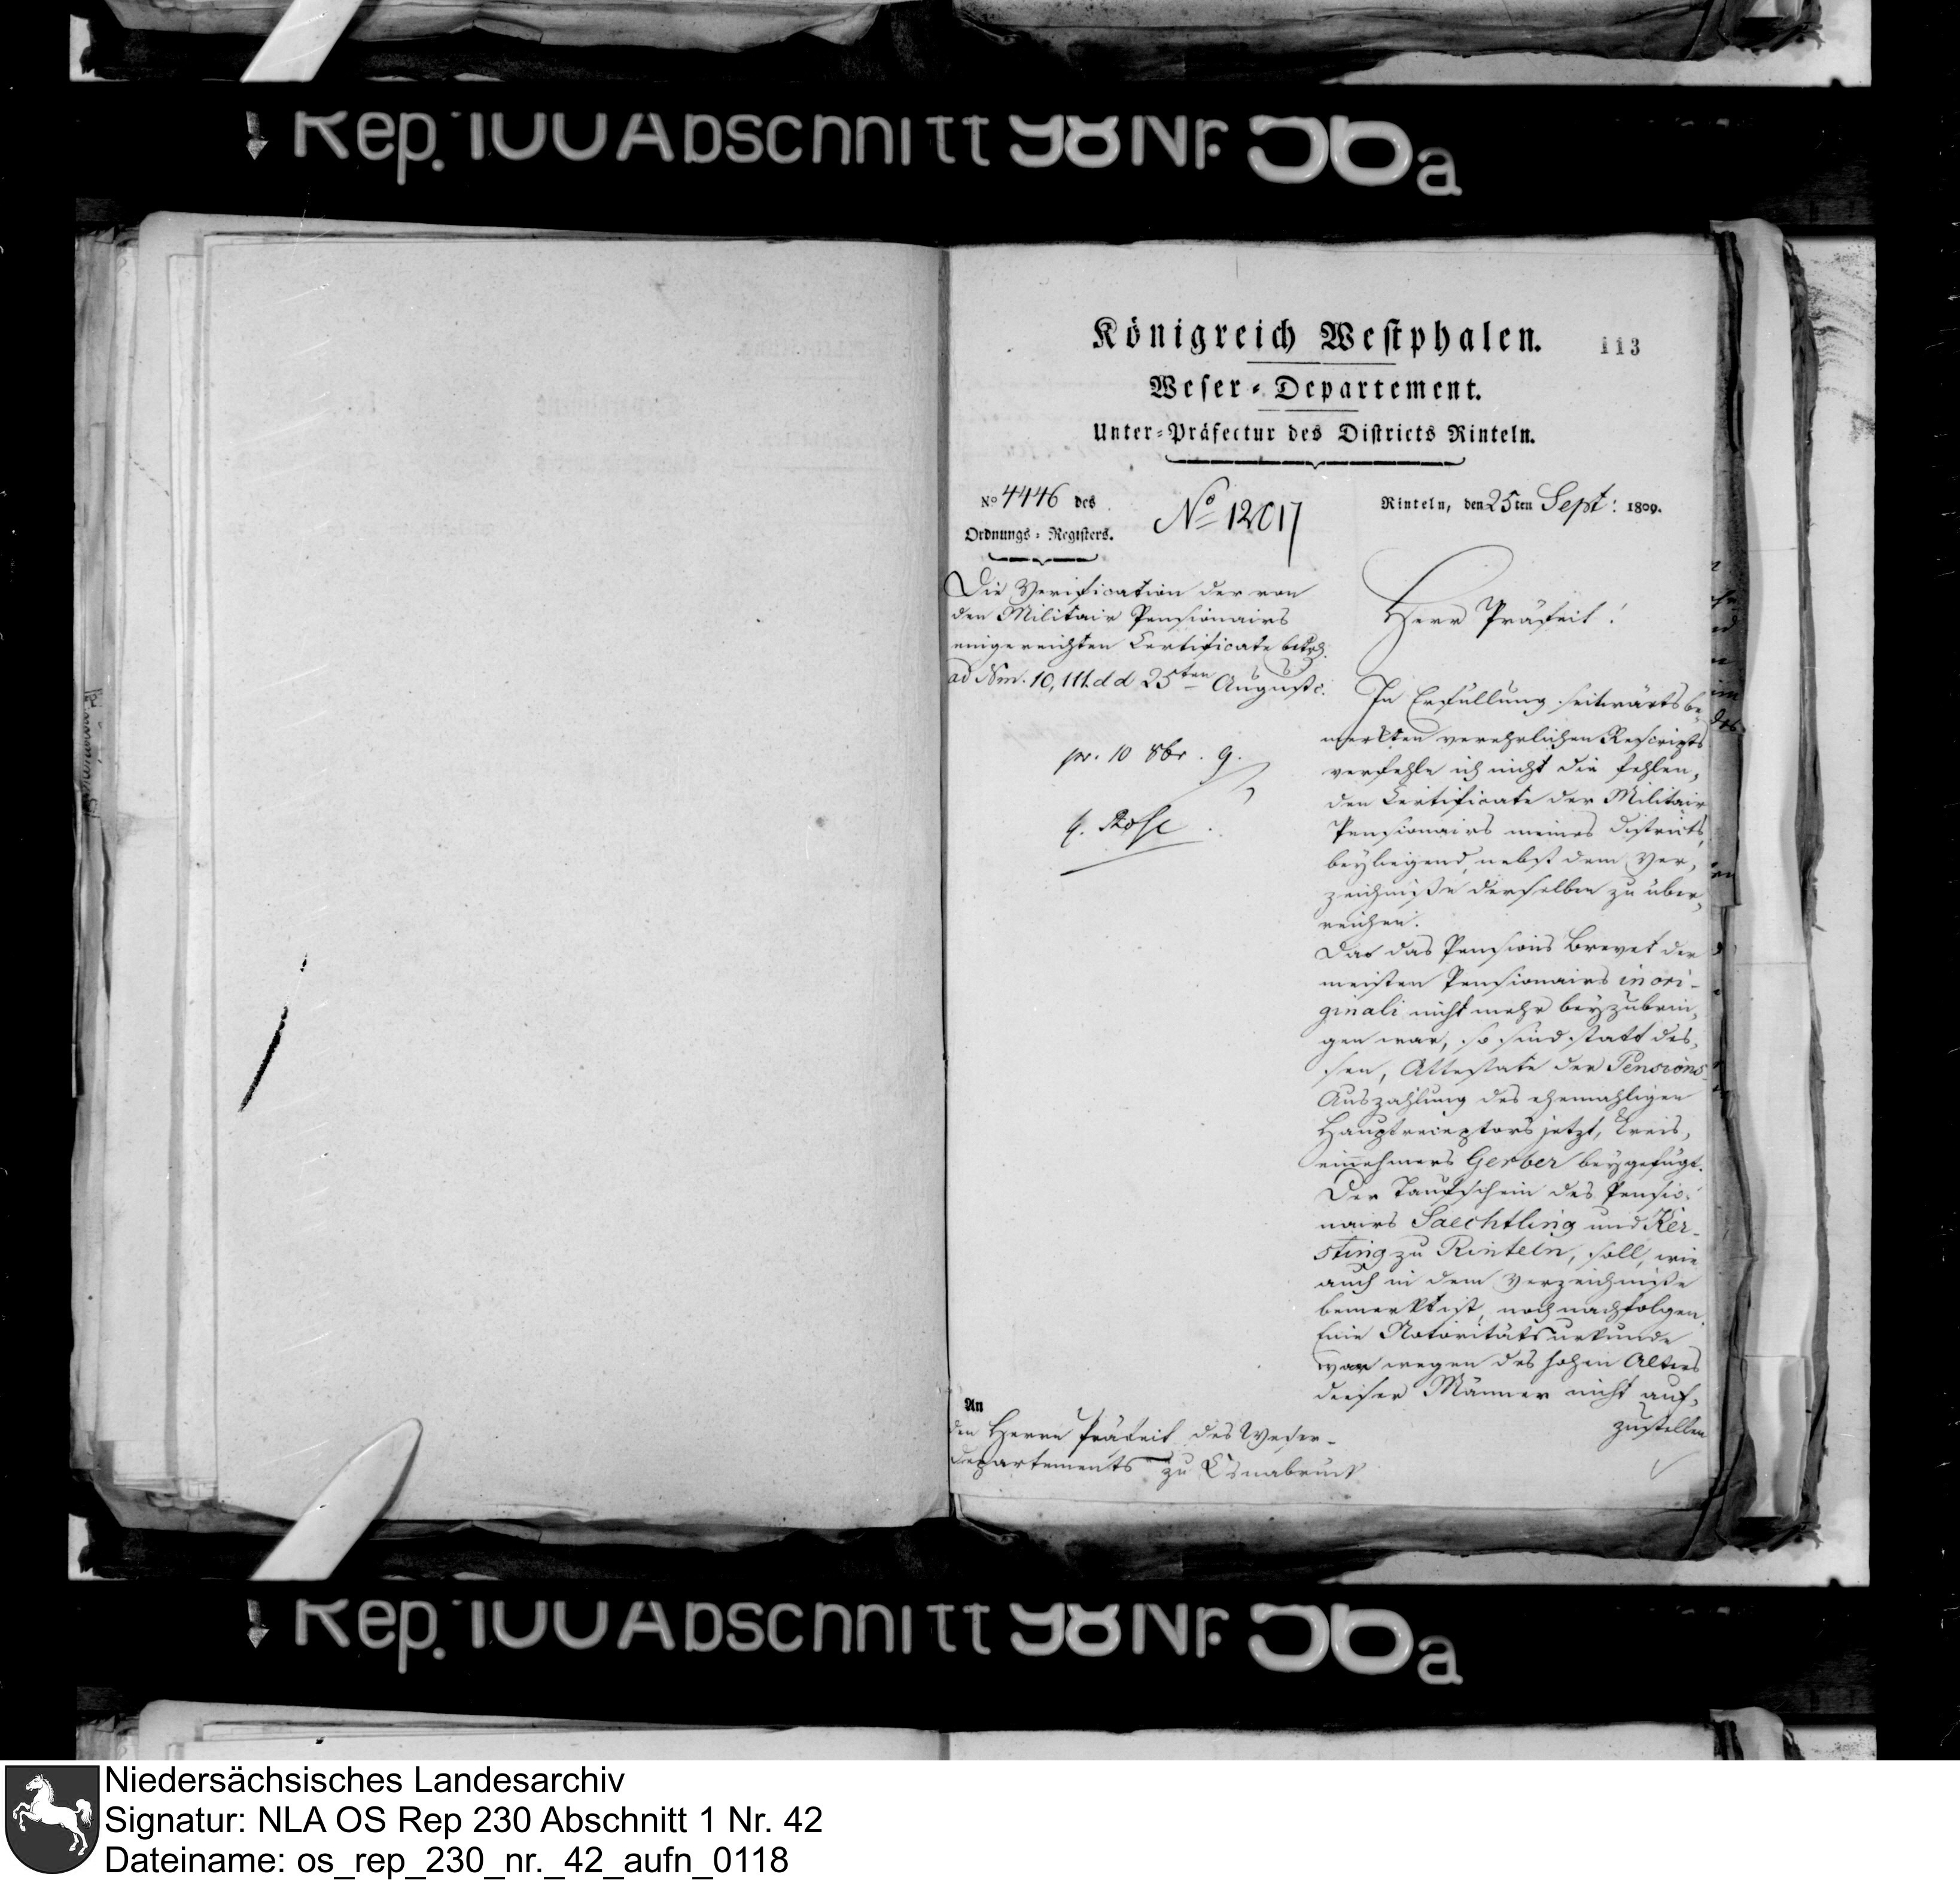 Rep. 100 Abschnitt 98 Nr. 56a
Königreich Westphalen.
113
Weser-Departement.
Unter-Präfectur des Districts Rinteln.
No 4446 des
Ordnungs-Registers.
No 12017
Rinteln, den 25ten Sept: 1809.
Die Verification der von
den Militair Pensionairs
eingereichten Certificate betrf.
ad Num. 10,111. d d 25ten August c.
pr. 10 8br. 9.
Rose
Herr Präfect!
In Erfüllung seitwärts be
merkten verehrlichen Rescripts
verfehle ich nicht die fehlen,
den Certificate der Militair
Pensionairs meines Districts,
beyliegend nebst dem Ver,
zeichniße derselben zu über,
reichen.
Da das Pensions Brevet der
meisten Pensionairs in ori-
ginali nicht mehr beyzubrin,
gen war, so sind statt des,
sen, Attestate der Pensions-
Auszahlung des ehemahligen
Hauptreceptors jetzt, Kreis,
einnehmers Gerber beygefügt.
Der Taufschein des Pensio-
nairs Saechtling und Ker-
sting zu Rinteln, soll, wie
auch in dem Verzeichniße
bemerkt ist, noch nachfolgen.
Eine Notoritätsurkunde
war wegen des hohen Alters
dieser Männer nicht auf,
zustellen
An
den Herrn Präfect des Weser-
Departements zu Osnabrück
Rep. 100 Abschnitt 98 Nr. 56a
Niedersächsisches Landesarchiv
Signatur: NLA OS Rep 230 Abschnitt 1 Nr. 42
Dateiname: os_rep_230_nr._42_aufn_0118